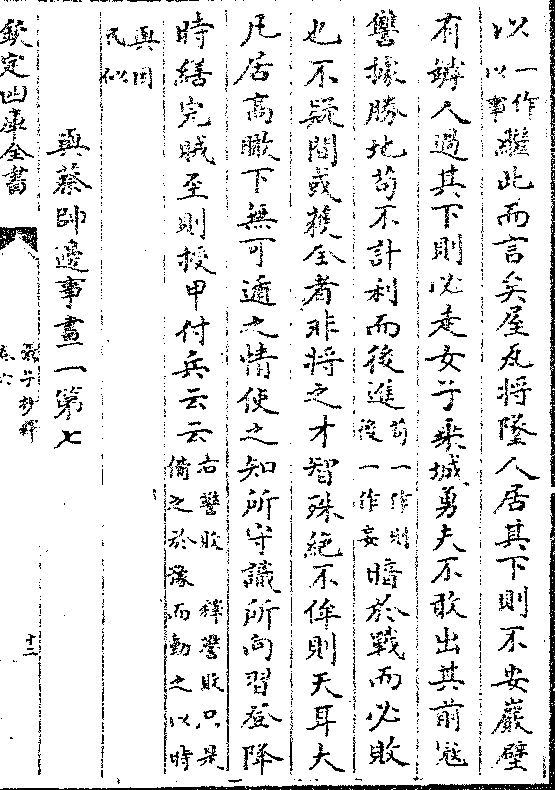 以一作以事繼此而言矣屋瓦將墜人居其下則不安巖壁
有罅人過其下則必走女子乗城勇夫不敢出其前冦
讐據勝地苟不計利而後進苟一作則後一作妄暗於戰而必敗
也不疑間或獲全者非將之才智殊絶不侔則天耳大
凡居高瞰下無可遁之情使之知所守識所向習登降
時繕完賊至則授甲付兵云云右警敗 釋警敗只是備之於豫而動之以時
與因民似
與蔡帥邊事畫一第七
欽定四庫全書
張子抄釋
卷六
十二